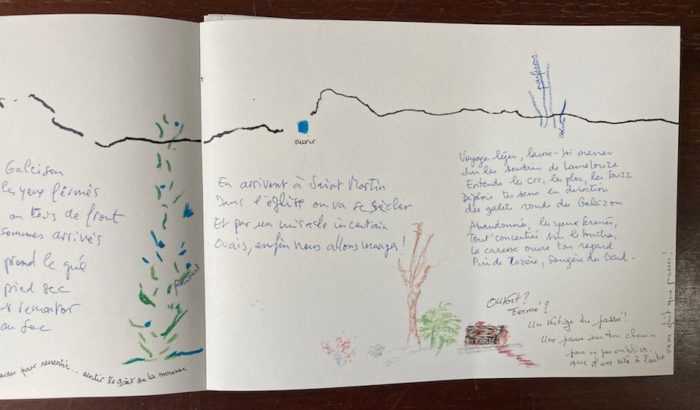 Galeizon
les yeux fermés
au tiers de front
sommes arrivés
prend le gué
pied sec
et remonter
au sec
sentir le goût de la mousse
ouvrir
En arrivant à Saint Martin
Dans l'église on va se sècher
Et par un miracle incertain
Ouais, enfin nous allons manger!
Voyage léger, laisse-toi mener
Sur les sentiers de Lamelouze
Entends le crr, le ploc, le buzz
Déploie tes sens en direction
des galets ronds du Galeizon
Abandonné, les yeux fermés,
Tout concentré sur le toucher,
La caresse ouvre ton regard
Pin de Lozère, Fougère du Gard.
Ouvert?
Fermé?
Un vestige du passé!
Une pause sur ton chemin
pour ne pas oublier
que d'une rive à l'autre